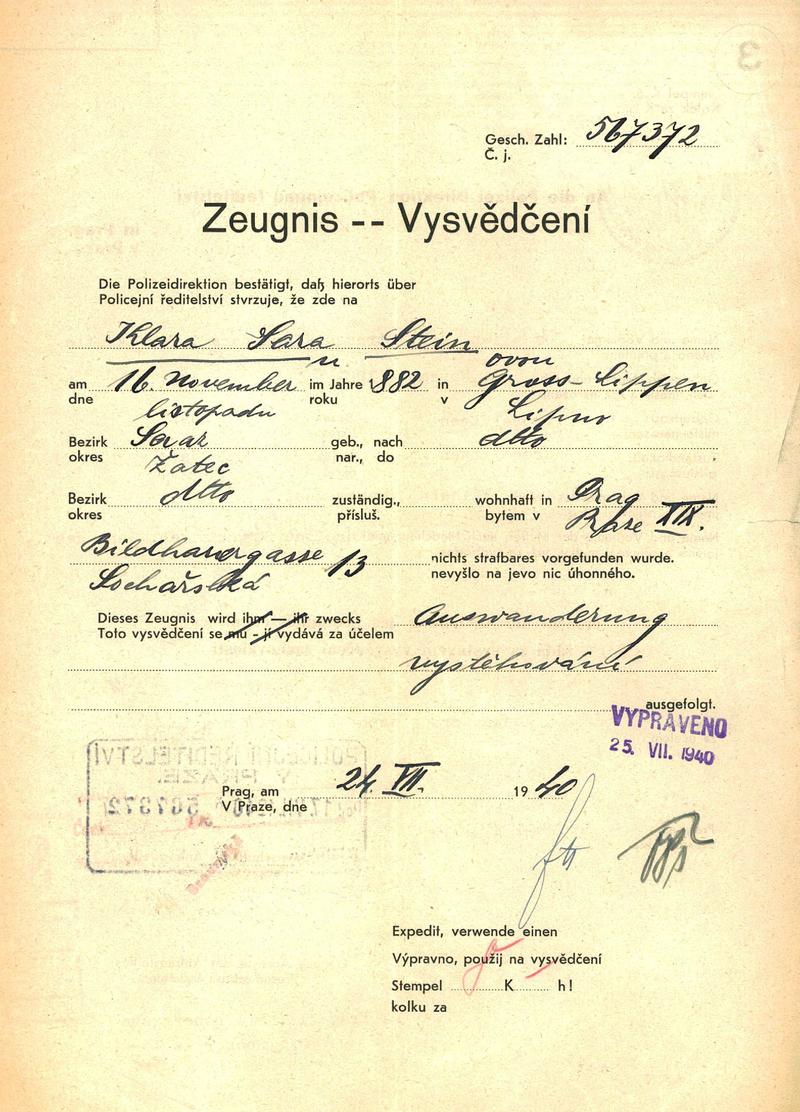 Gesch. Zahl: 567372
Č. j.
Zeugnis -- Vysvědčení
Die Polizeidirektion bestätigt, daß hierorts über
Policejní ředitelství stvrzuje, že zde na
Klara Sara Stein
ovou
am 16. November im Jahre 1882 in Gross-Lippen
dne listopadu roku v Lipno
Bezirk Saaz geb., nach dtto
okres Žatec nar., do
Bezirk dtto zuständig., wohnhaft in Prag
okres přísluš. bytem v Praze XIX.
Bildhauergasse 13 nichts strafbares vorgefunden wurde.
Sochařská nevyšlo na jevo nic úhonného.
Dieses Zeugnis wird ihm — ihr zwecks Auswanderung
Toto vysvědčení se mu - jí vydává za účelem
vystěhování
ausgefolgt.
VYPRAVENO
25. VII. 1940
POLICEJNÍ ŘEDITELSTVÍ
V PRAZE
567372
Prag, am 24. VII. 1940
V Praze, dne
Expedit, verwende einen
Výpravno, použij na vysvědčení
Stempel K h!
kolku za